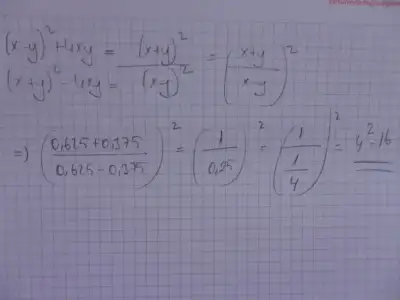 (x-y)² + 4xy = (x+y)² = ((x+y)/(x-y))²
(x+y)² - 4xy = (x-y)²
=> ((0,625+0,375)/(0,625-0,375))² = (1/0,25)² = (1/(1/4))² = 4² = 16